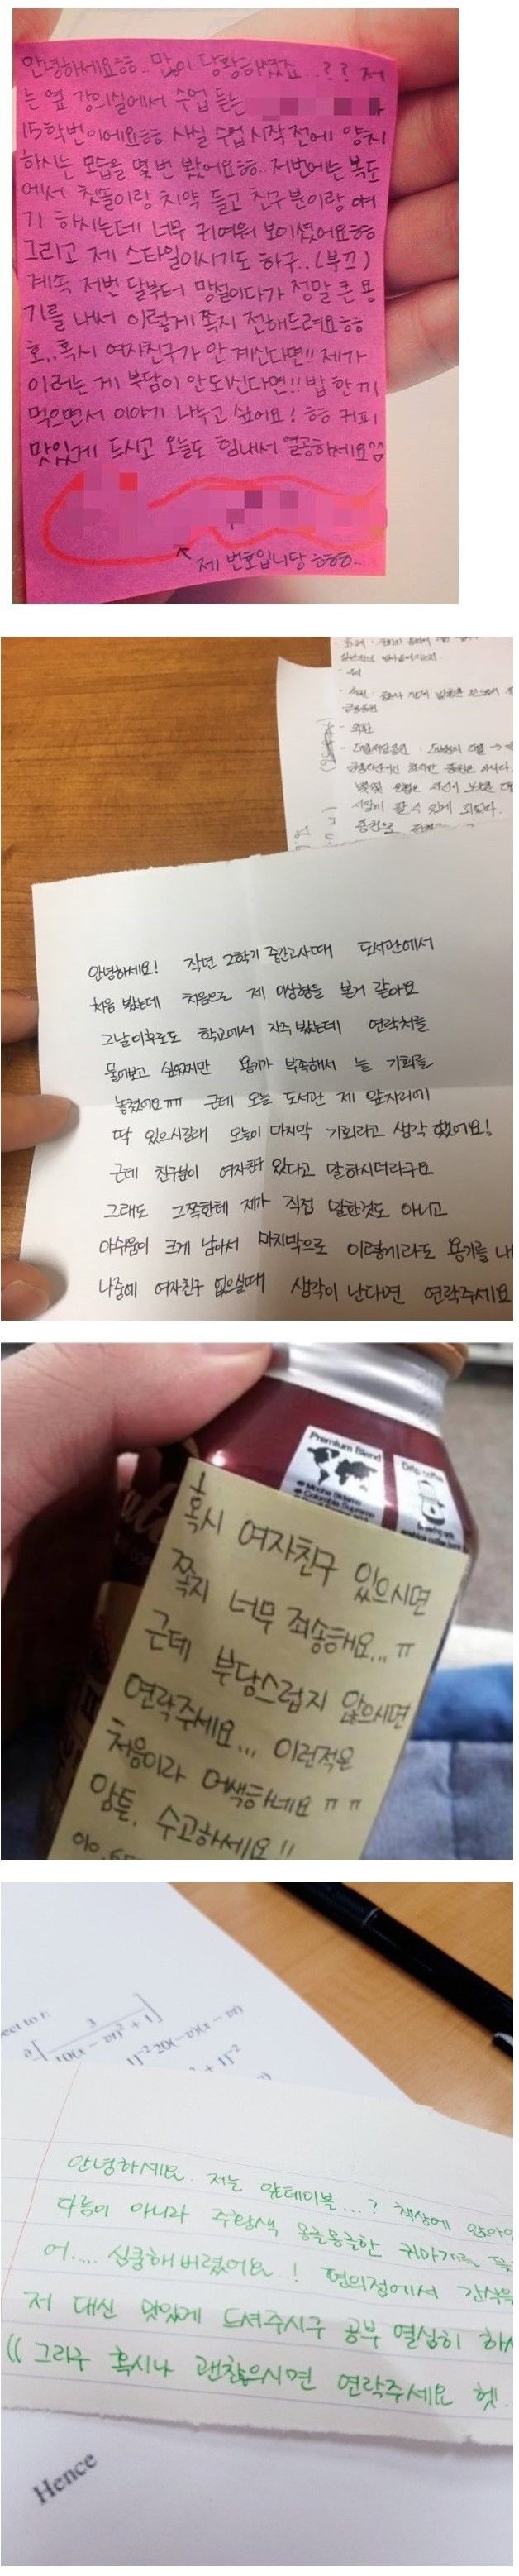 안녕하세요ㅎㅎ.. 많이 당황하셨죠..?? 저
는 옆 강의실에서 수업 듣는
15학번이에요ㅎㅎ 사실 수업 시작 전에 양치
하시는 모습을 몇번 봤어요ㅎㅎ.. 저번에는 복도
에서 칫똘이랑 치약 들고 친구분이랑 얘
기 하시는데 너무 귀여워 보이셨어요ㅎㅎ
그리고 제 스타일이시기도 하구..(부끄)
계속 저번 달부터 망설이다가 정말 큰 용
기를 내서 이렇게 쪽지 전해드려요ㅎㅎ
호,.혹시 여자친구가 안 계신다면!! 제가
이러는 게 부담이 안되신다면!! 밥 한끼
먹으면서 이야기 나누고 싶어요! ㅎㅎ 커피
맛있게 드시고 오늘도 힘내서 열공하세요^^
제 번호입니당 ㅎㅎㅎ..
안녕하세요! 작년 2학기 중간고사때 도서관에서
처음 봤는데 처음으로 제 이상형을 본거 같아요
그날이후로도 학교에서 자주 봤는데 연락처를
물어보고 싶었지만 용기가 부족해서 늘 기회를
놓쳤어요ㅠㅠ 근데 오늘 도서관 제 앞자리에
딱 있으시길래 오늘이 마지막 기회라고 생각했어요!
근데 친구분이 여자친구 있다고 말하시더라구요
그래도 그쪽한테 제가 직접 말한것도 아니고
아쉬움이 크게 남아서 마지막으로 이렇게라도 용기를 내
나중에 여자친구 없으실때 생각이 난다면 연락주세요
Premium Blend
Drip coffee
혹시 여자친구 있으시면
쪽지 너무 죄송해요... ㅠ
근데 부담스럽지 않으시면
연락주세요... 이런적은
처음이라 어색하네요 ㅠㅠ
암튼, 수고하세요!!
010.
안녕하세요. 저는 앞테이블...? 책상에 앉아
다름이 아니라 주황색 몽글몽글한 귀마개를
어.... 심쿵해버렸어요..! 편의점에서 간식을
저 대신 맛있게 드셔주시구 공부 열심히 하
(( 그리구 혹시나 괜찮으시면 연락주세요 헷.
Hence